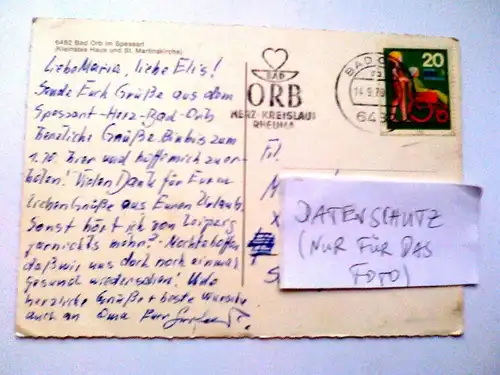 6482 Bad Orb im Spessart
(Kleinstes Haus und St. Martinskirche)
Liebe Maria, liebe Elis!
Sende Euch Grüße aus dem
Spessart-Herz-Bad-Orb
Herzliche Grüße. Bin bis zum
1.10. hier und hoffe mich zu er-
holen! Vielen Dank für Euren
lieben Grüße aus Euren Urlaub.
Sonst hört ich von Leipzig
garnichts mehr?
daß wir uns doch noch einmal
Gesund wiedersehen! Und
herzliche Grüße + beste Wünsche
auch an Oma
BAD
ORB
HERZ-KREISLAUF
RHEUMA
BAD O
14.9.70
648
20
Frl.
M
K
S
DATENSCHUTZ
(NUR FÜR DAS
FOTO)